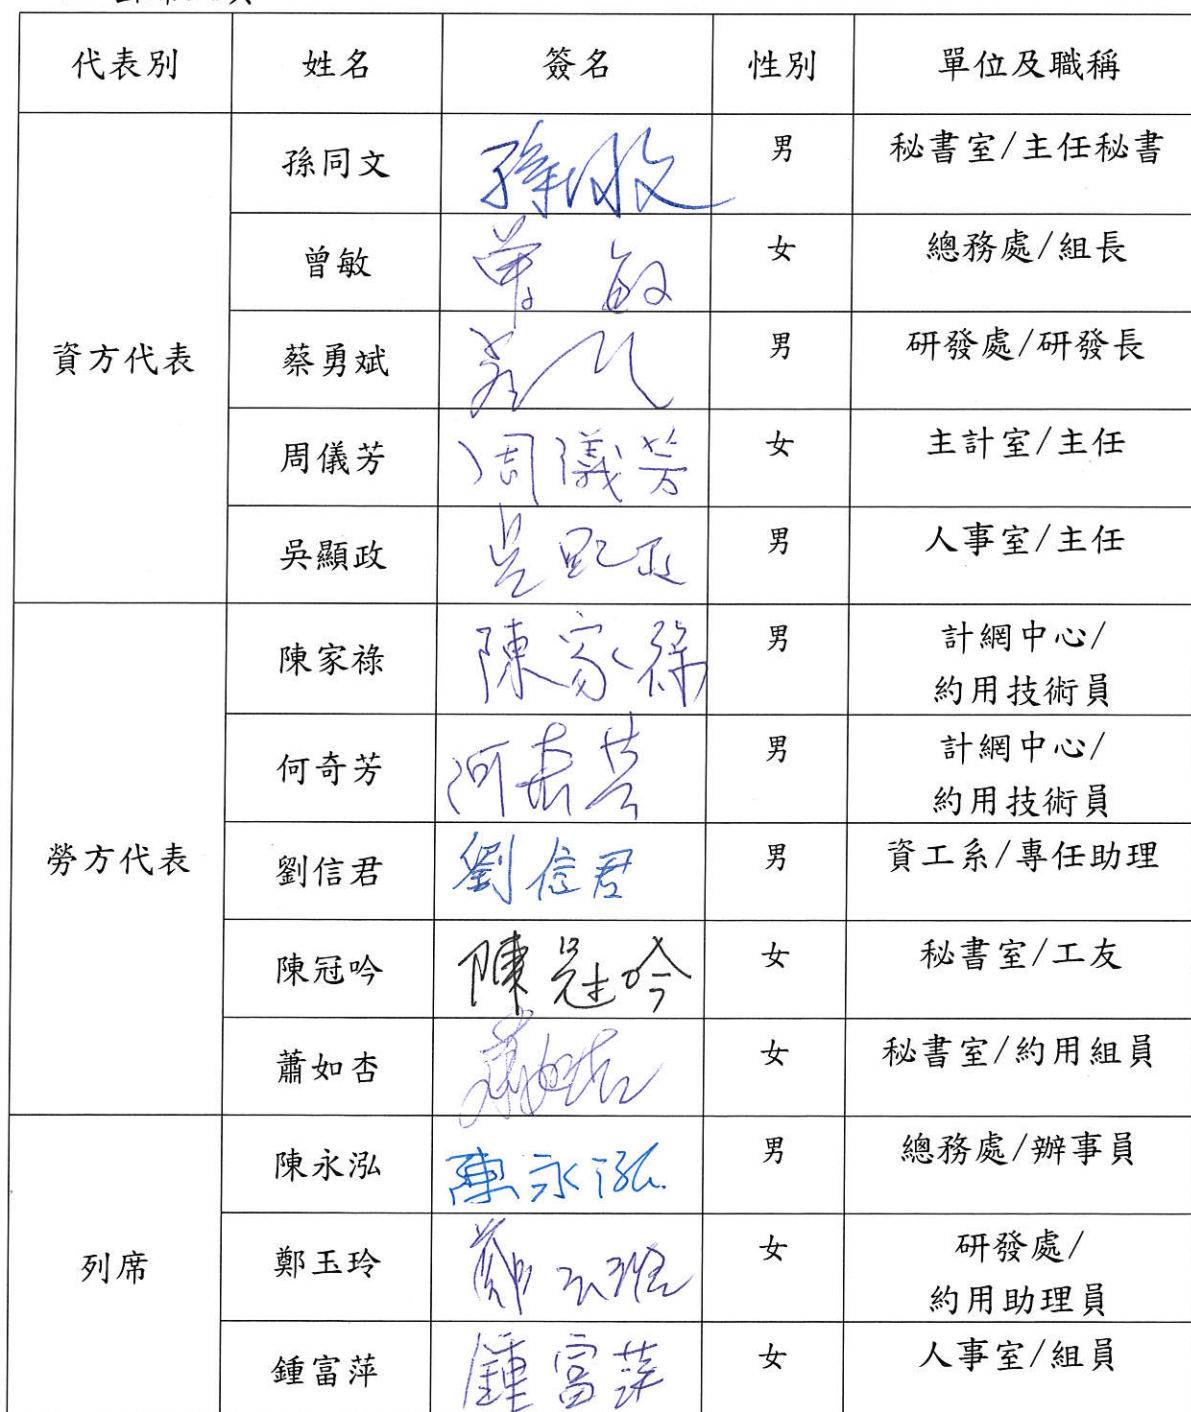 代表別 姓名 簽名 性別 單位及職稱
資方代表
孫同文 男 秘書室/主任秘書
曾敏 曾敏 女 總務處/組長
蔡勇斌 男 研發處/研發長
周儀芳 周儀芳 女 主計室/主任
吳顯政 男 人事室/主任
勞方代表
陳家祿 陳家祿 男 計網中心/
約用技術員
何奇芳 何奇芳 男 計網中心/
約用技術員
劉信君 劉信君 男 資工系/專任助理
陳冠吟 陳冠吟 女 秘書室/工友
蕭如杏 女 秘書室/約用組員
列席
陳永泓 陳永泓 男 總務處/辦事員
鄭玉玲 女 研發處/
約用助理員
鍾富萍 鍾富萍 女 人事室/組員